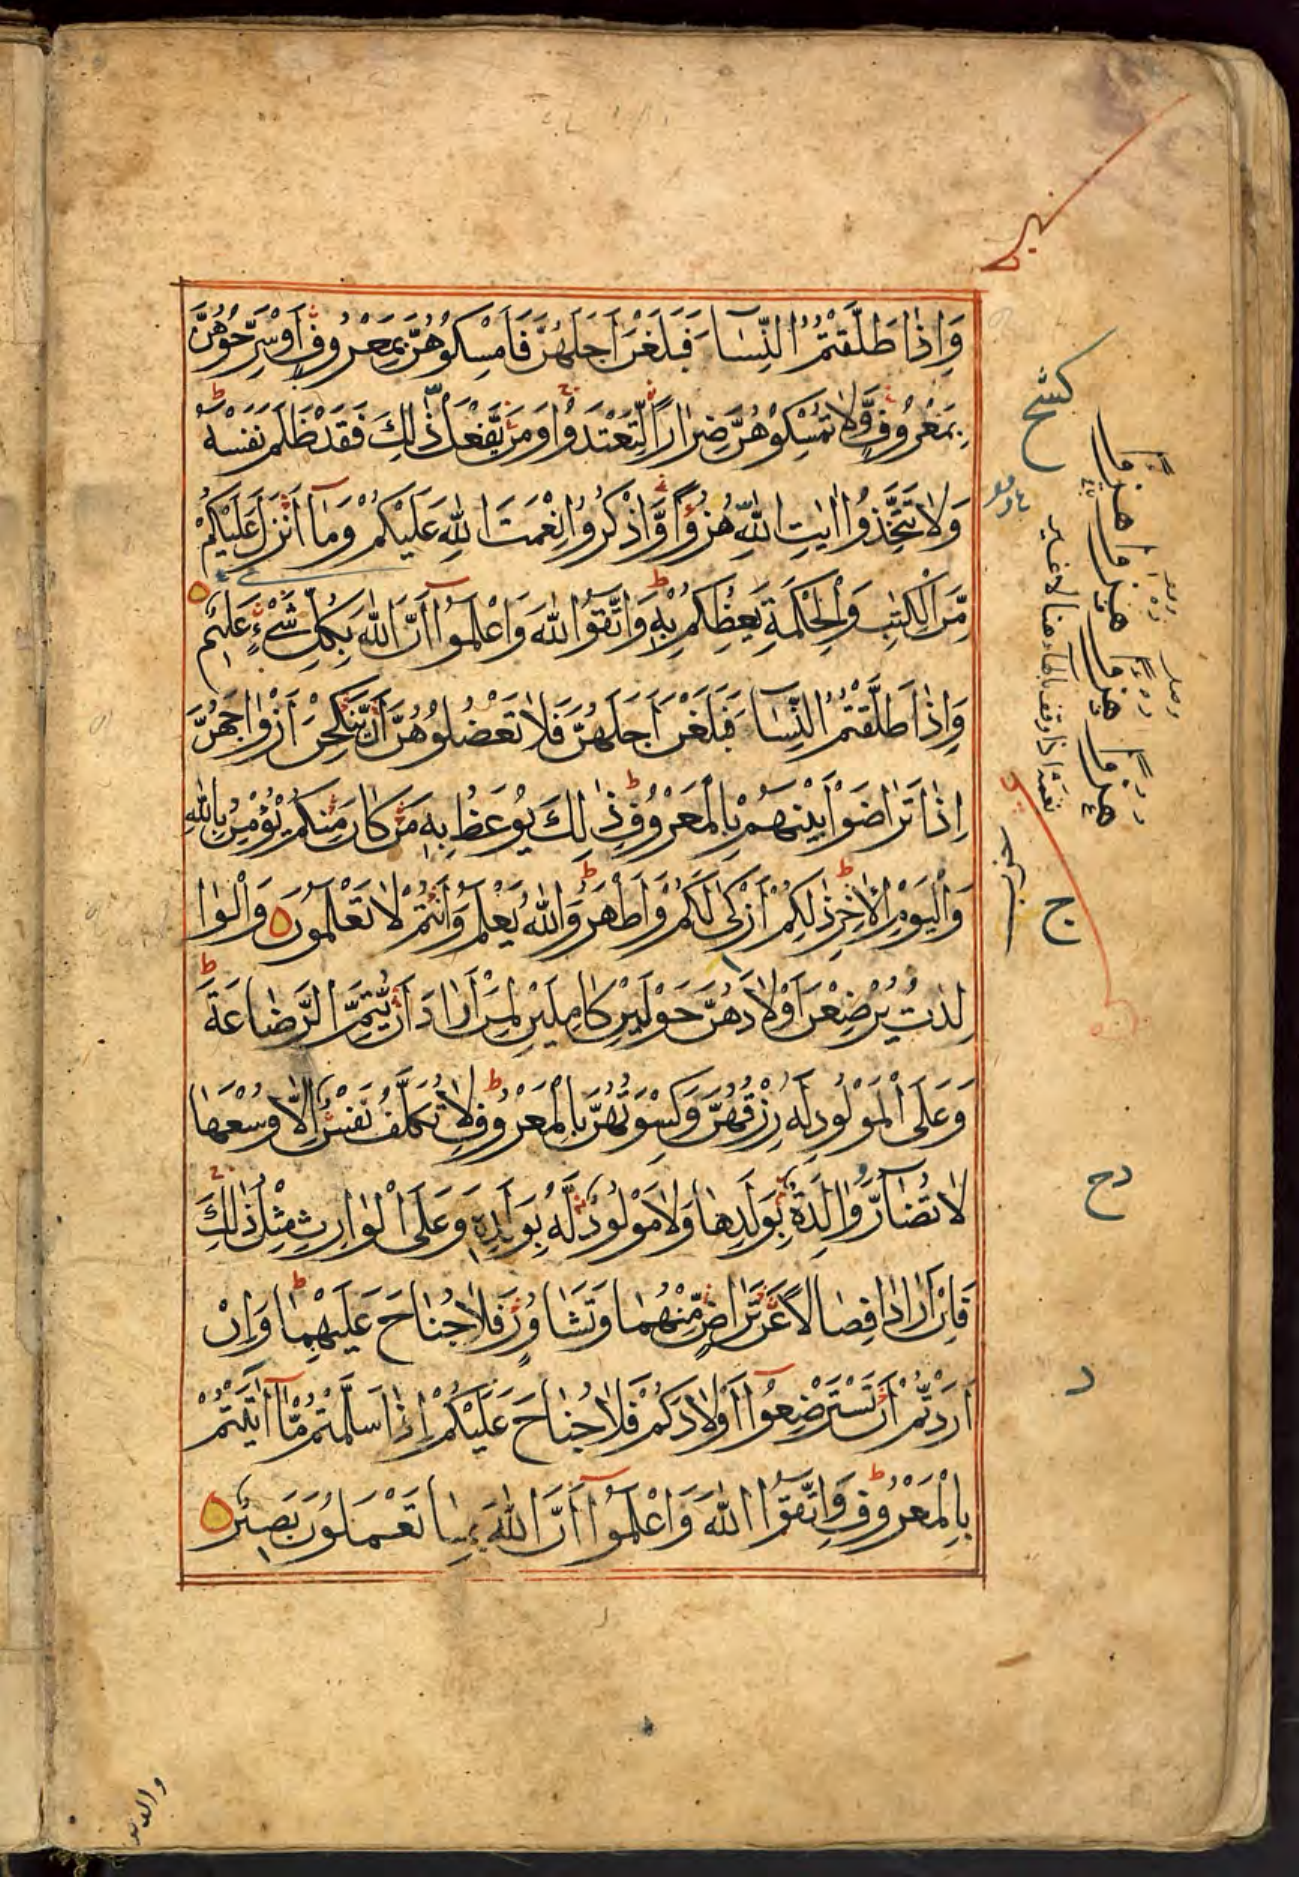 وَاِذَا طَلَّقْتُمُ النِّسَآءَ فَبَلَغْنَ اَجَلَهُنَّ فَاَمْسِكُوْهُنَّ بِمَعْرُوْفٍ اَوْ سَرِّحُوْهُنَّ
بِمَعْرُوْفٍ وَّلَا تُمْسِكُوْهُنَّ ضِرَارًا لِّتَعْتَدُوْا وَمَنْ يَّفْعَلْ ذٰلِكَ فَقَدْ ظَلَمَ نَفْسَهٗ ط
وَلَا تَتَّخِذُوْا اٰيٰتِ اللّٰهِ هُزُوًا وَّاذْكُرُوْا نِعْمَتَ اللّٰهِ عَلَيْكُمْ وَمَآ اَنْزَلَ عَلَيْكُمْ
مِّنَ الْكِتٰبِ وَالْحِكْمَةِ يَعِظُكُمْ بِهٖ ط وَاتَّقُوا اللّٰهَ وَاعْلَمُوْٓا اَنَّ اللّٰهَ بِكُلِّ شَيْءٍ عَلِيْمٌ
وَاِذَا طَلَّقْتُمُ النِّسَآءَ فَبَلَغْنَ اَجَلَهُنَّ فَلَا تَعْضُلُوْهُنَّ اَنْ يَّنْكِحْنَ اَزْوَاجَهُنَّ
اِذَا تَرَاضَوْا بَيْنَهُمْ بِالْمَعْرُوْفِ ط ذٰلِكَ يُوْعَظُ بِهٖ مَنْ كَانَ مِنْكُمْ يُؤْمِنُ بِاللّٰهِ
وَالْيَوْمِ الْاٰخِرِ ط ذٰلِكُمْ اَزْكٰى لَكُمْ وَاَطْهَرُ ط وَاللّٰهُ يَعْلَمُ وَاَنْتُمْ لَا تَعْلَمُوْنَ وَالْوَا
لِدٰتُ يُرْضِعْنَ اَوْلَادَهُنَّ حَوْلَيْنِ كَامِلَيْنِ لِمَنْ اَرَادَ اَنْ يُّتِمَّ الرَّضَاعَةَ ط
وَعَلَى الْمَوْلُوْدِ لَهٗ رِزْقُهُنَّ وَكِسْوَتُهُنَّ بِالْمَعْرُوْفِ ط لَا تُكَلَّفُ نَفْسٌ اِلَّا وُسْعَهَا
لَا تُضَآرَّ وَالِدَةٌ بِوَلَدِهَا وَلَا مَوْلُوْدٌ لَّهٗ بِوَلَدِهٖ وَعَلَى الْوَارِثِ مِثْلُ ذٰلِكَ
فَاِنْ اَرَادَا فِصَالًا عَنْ تَرَاضٍ مِّنْهُمَا وَتَشَاوُرٍ فَلَا جُنَاحَ عَلَيْهِمَا ط وَاِنْ
اَرَدْتُّمْ اَنْ تَسْتَرْضِعُوْٓا اَوْلَادَكُمْ فَلَا جُنَاحَ عَلَيْكُمْ اِذَا سَلَّمْتُمْ مَّآ اٰتَيْتُمْ
بِالْمَعْرُوْفِ ط وَاتَّقُوا اللّٰهَ وَاعْلَمُوْٓا اَنَّ اللّٰهَ بِمَا تَعْمَلُوْنَ بَصِيْرٌ
ج
دح
د